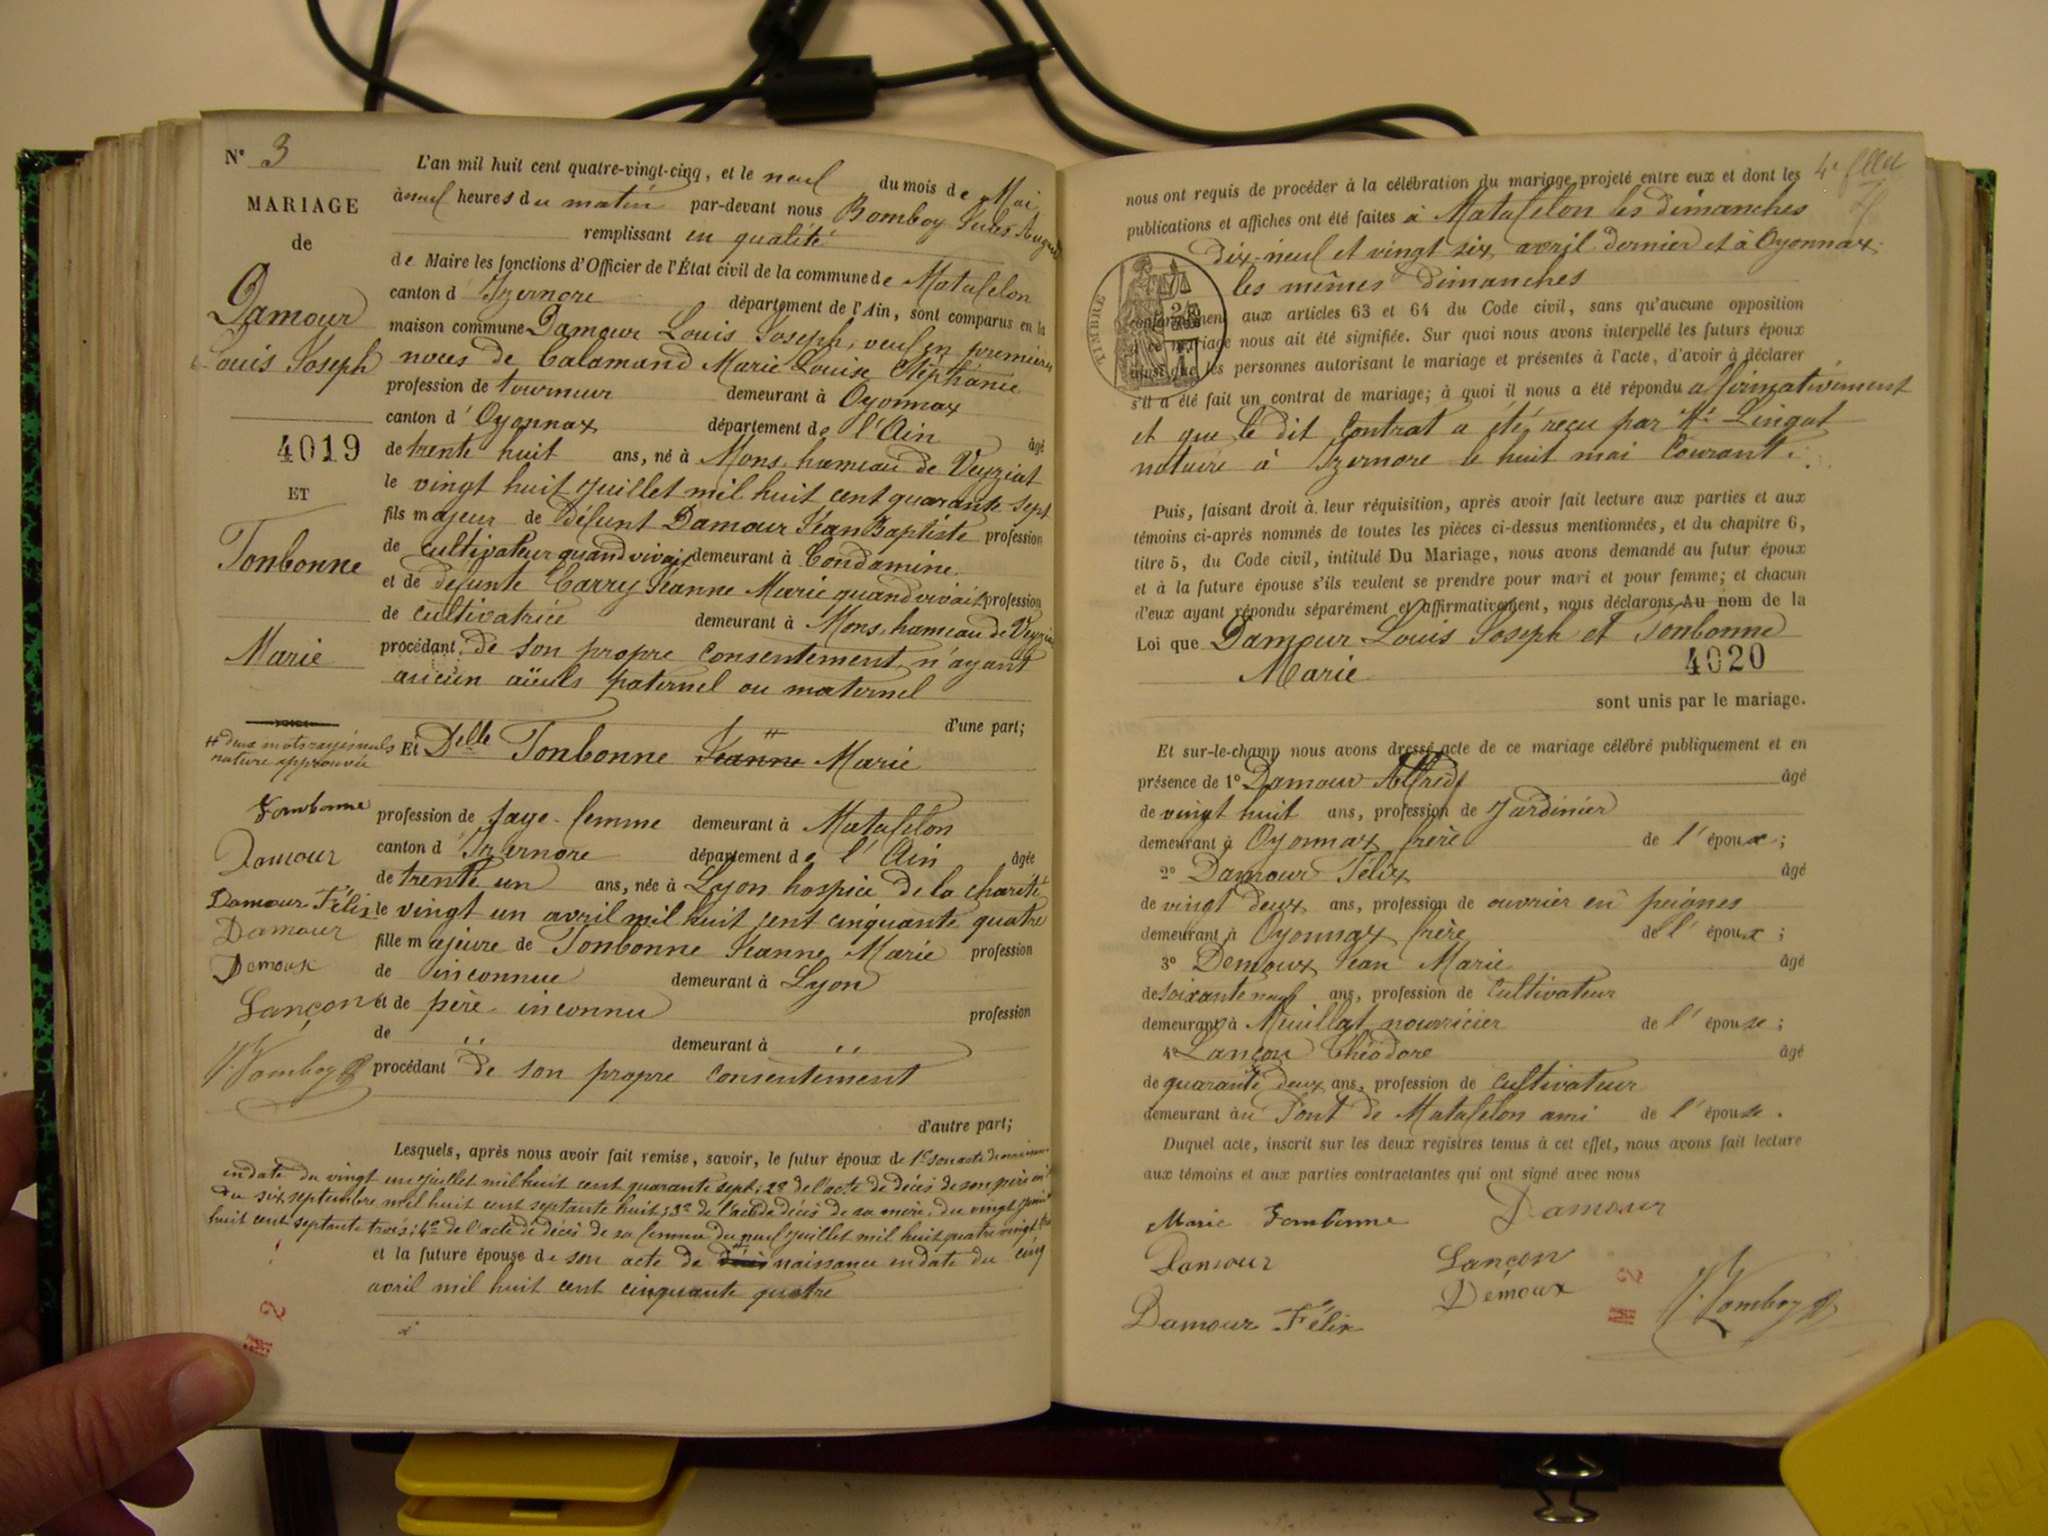 N° 3
MARIAGE
de
Damour
Louis Joseph
4019
ET
Tonbonne
Marie
# deux mots rayés nuls
nature approuvée
Tombonne
Damour
Damour Félix
Damour
Demoux
Lançon
L'an mil huit cent quatre-vingt-cinq, et le neuf du mois de Mai
à neuf heures du matin par-devant nous Bomboy Jules August
remplissant en qualité
de Maire les fonctions d'Officier de l'État civil de la commune de Matafelon
canton d'Izernore département de l'Ain, sont comparus en la
maison commune Damour Louis Joseph, veuf en premières
noces de Calamand Marie Louise Stéphanie
profession de tourneur demeurant à Oyonnax
canton d'Oyonnax département de l'Ain âgé
de trente huit ans, né à Mons, hameau de Veyziat
le vingt huit juillet mil huit cent quarante sept
fils majeur de défunt Damour Jean Baptiste profession
de cultivateur quand vivait demeurant à Condamine
et de défunte Carry Jeanne Marie quand vivait profession
de cultivatrice demeurant à Mons, hameau de Veyzia
procédant de son propre consentement n'ayant
aucun aïeuls paternel ou maternel
d'une part;
Et Delle Tonbonne # Jeanne Marie
profession de sage-femme demeurant à Matafelon
canton d'Izernore département de l'Ain âgée
de trente un ans, née à Lyon hospice de la charité
le vingt un avril mil huit cent cinquante quatre
fille majeure de Tonbonne Jeanne Marie profession
de inconnue demeurant à Lyon
et de père inconnu profession
de ,, demeurant à ,,
procédant de son propre consentement
d'autre part;
Lesquels, après nous avoir fait remise, savoir, le futur époux de 1° son acte de
en date du vingt un juillet mil huit cent quarante sept; 2° de l'acte de décès de son père en
du six septembre mil huit cent septante huit; 3° de l'acte de décès de sa mère, du vingt
huit cent septante trois; 4° de l'acte de décès de sa femme du neuf juillet mil huit quatre vingt
et la future épouse de son acte de # naissance en date du cinq
avril mil huit cent cinquante quatre
M 2
4e fllet
nous ont requis de procéder à la célébration du mariage projeté entre eux et dont les
publications et affiches ont été faites à Matafelon les dimanches
dix-neuf et vingt six avril dernier et à Oyonnax
les mêmes dimanches
TIMBRE
conformément aux articles 63 et 64 du Code civil, sans qu'aucune opposition
à ce mariage nous ait été signifiée. Sur quoi nous avons interpellé les futurs époux
ainsi que les personnes autorisant le mariage et présentes à l'acte, d'avoir à déclarer
s'il a été fait un contrat de mariage; à quoi il nous a été répondu affirmativement
et que le dit contrat a été reçu par Me Lingat
notaire à Izernore le huit mai courant.
Puis, faisant droit à leur réquisition, après avoir fait lecture aux parties et aux
témoins ci-après nommés de toutes les pièces ci-dessus mentionnées, et du chapitre 6,
titre 5, du Code civil, intitulé Du Mariage, nous avons demandé au futur époux
et à la future épouse s'ils veulent se prendre pour mari et pour femme; et chacun
d'eux ayant répondu séparément et affirmativement, nous déclarons Au nom de la
Loi que Damour Louis Joseph et Tonbonne
Marie
4020
sont unis par le mariage.
Et sur-le-champ nous avons dressé acte de ce mariage célébré publiquement et en
présence de 1° Damour Alfred âgé
de vingt huit ans, profession de Jardinier
demeurant à Oyonnax frère de l'époux;
2° Damour Félix âgé
de vingt deux ans, profession de ouvrier en peignes
demeurant à Oyonnax frère de l'époux;
3° Demoux Jean Marie âgé
de soixante neuf ans, profession de Cultivateur
demeurant à Meuillat nourricier de l'épouse;
4° Lançon Théodore âgé
de quarante deux ans, profession de cultivateur
demeurant au Pont de Matafelon ami de l'épouse.
Duquel acte, inscrit sur les deux registres tenus à cet effet, nous avons fait lecture
aux témoins et aux parties contractantes qui ont signé avec nous
Marie Tombonne Damour
Damour Lançon
Demoux
Damour Félix
M 2
J. Bomboy